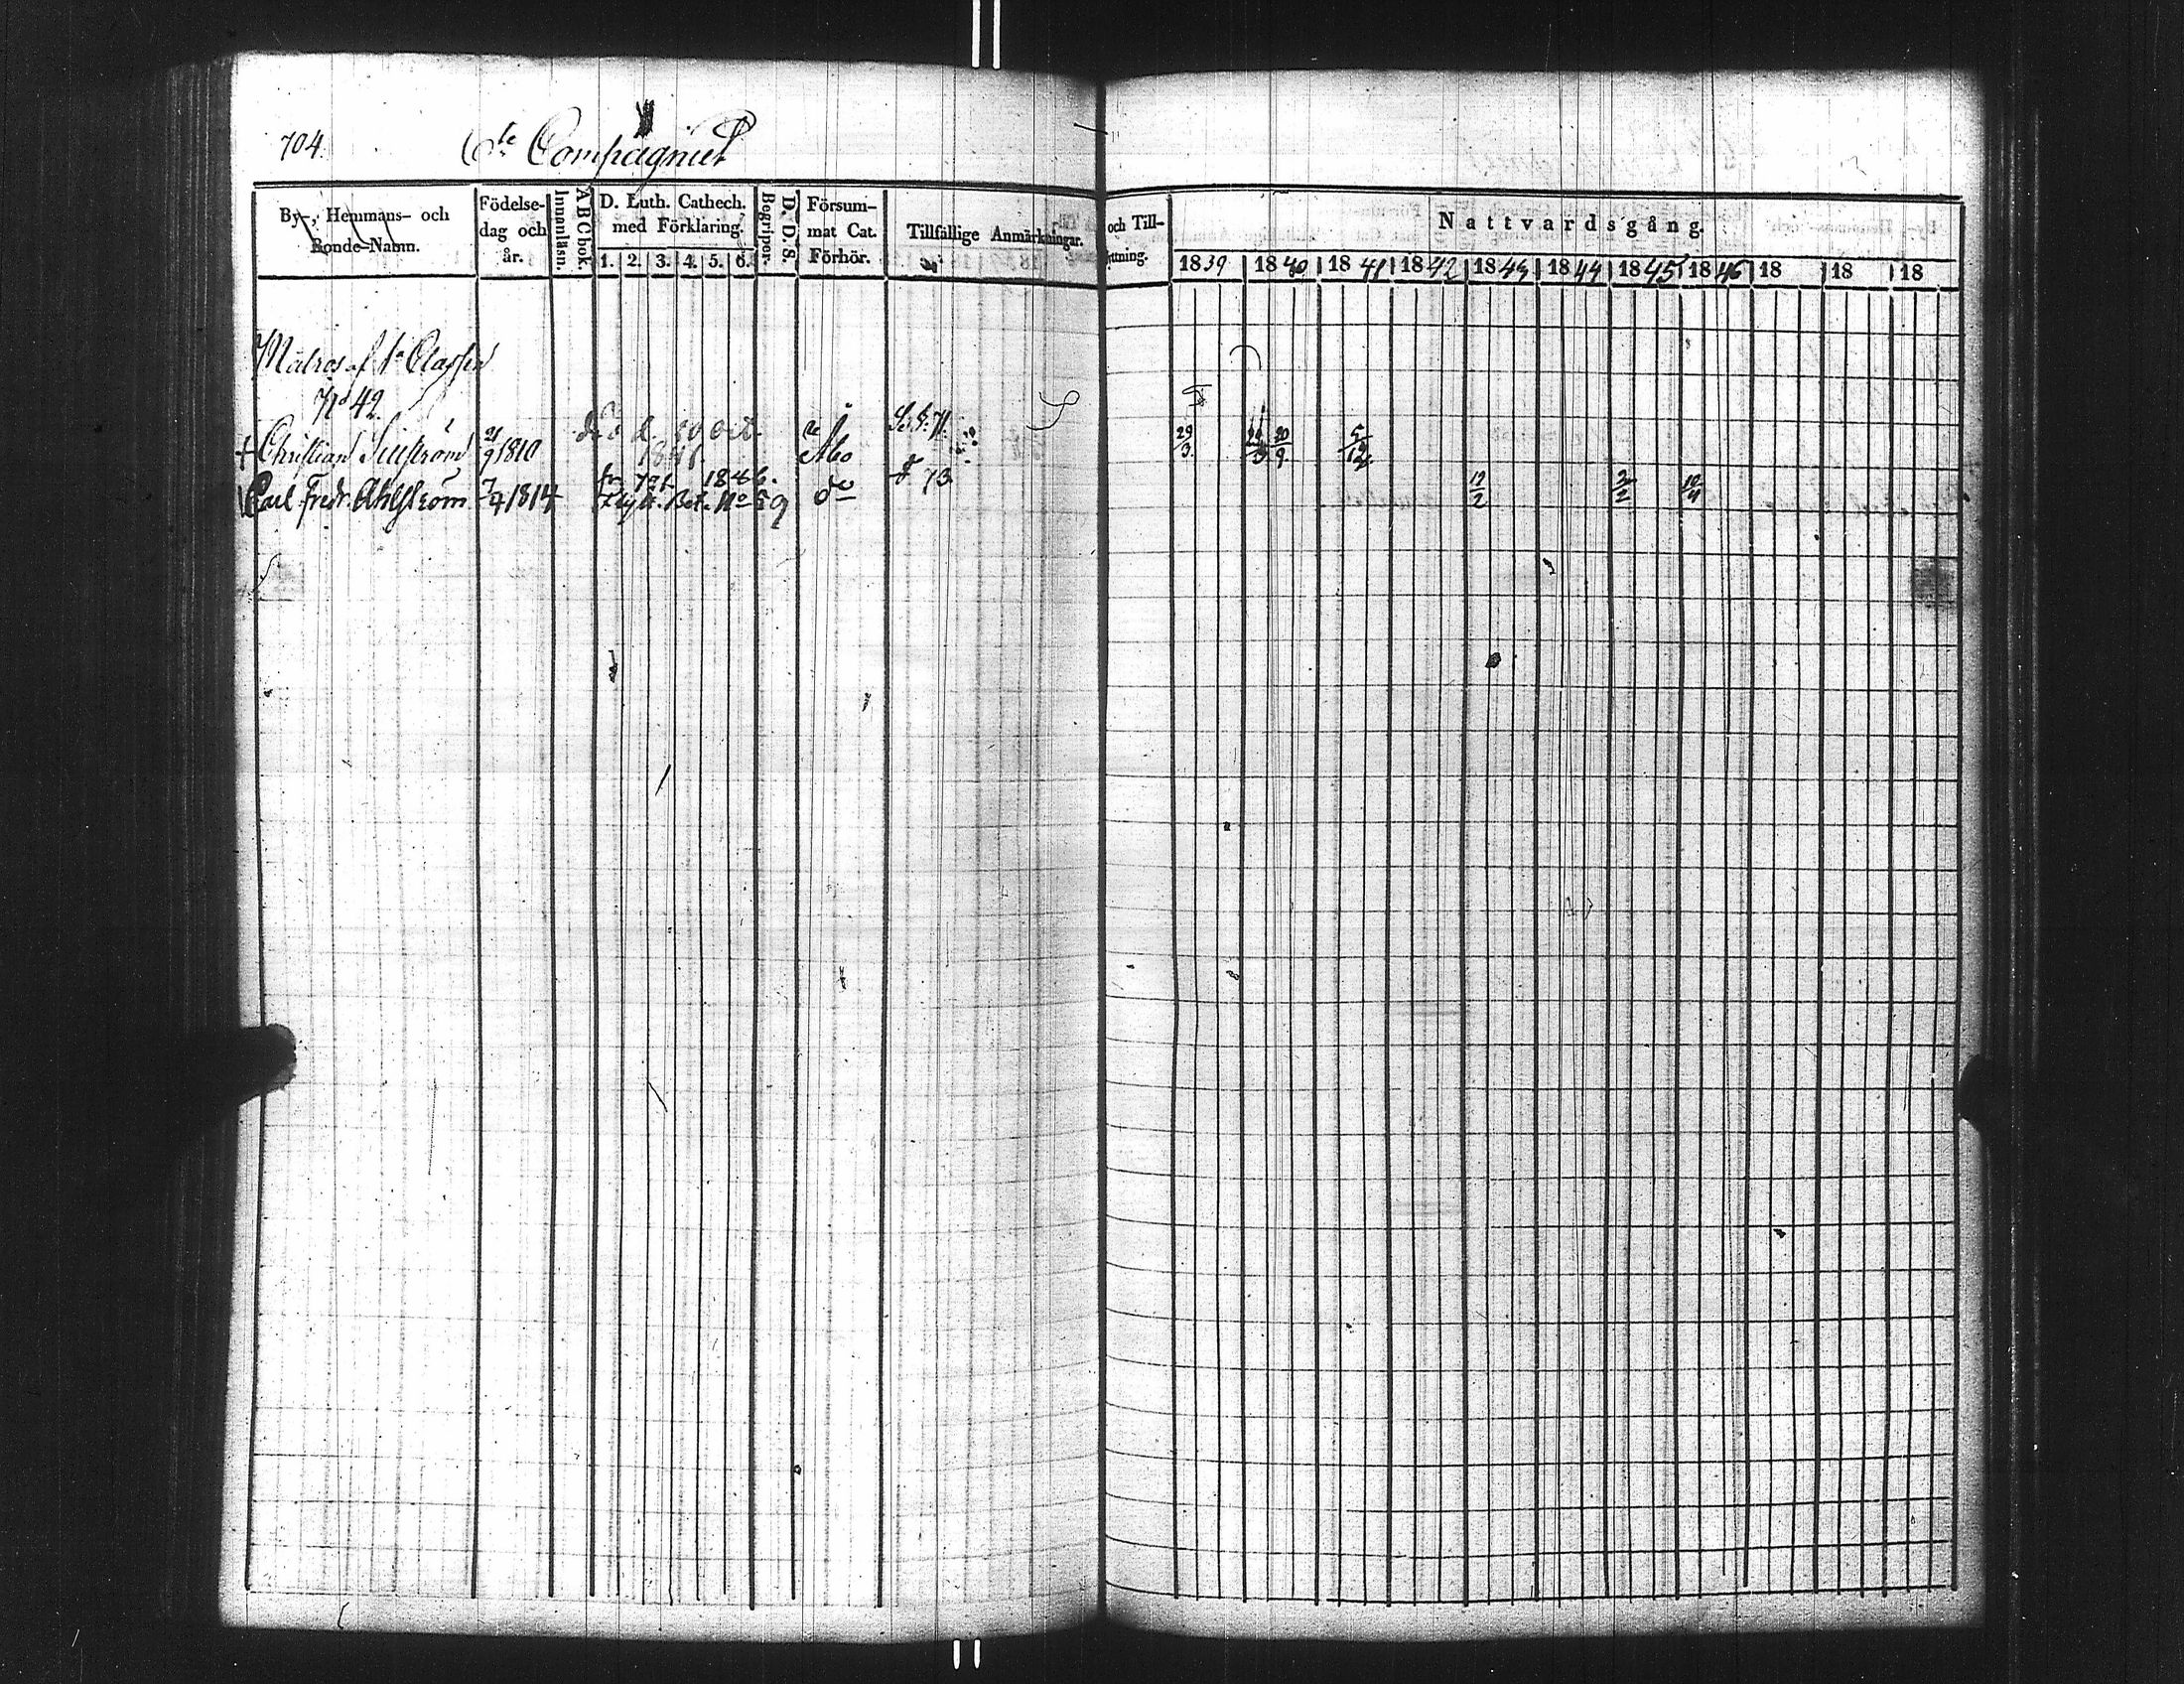 704.
6te Compagniet
By-, Hemmans- och Bonde-Namn.
Födelse-dag och år.
Innanläsn.
ABCbok.
D. Luth. Cathech. med Förklaring.
1. 2. 3. 4. 5. 6.
Begriper.
D. D. S.
Försum-mat Cat. Förhör.
Tillfällige Anmärkningar.
och Till-
ttning.
Nattvardsgång.
1839 1840 1841 1842 1843 1844 1845 1846 18 18 18
Matros af 1a Classen
No 42.
+ Christian 21/9 1810 död d. 1841. Åbo 29/3 20/9 5/12
Carl Fredr. Ahlström 7/7 1814 1846. Bet. No 59 do 73 12/2 2/2 10/4